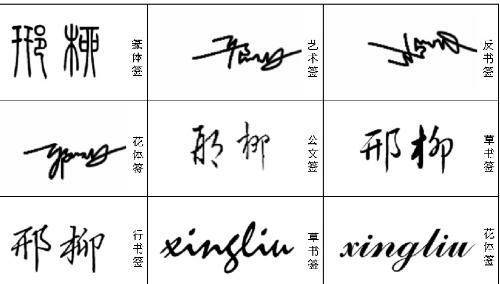 邢柳
篆体签
艺术签
反书签
花体签
邢柳
公文签
邢柳
草书签
邢柳
行书签
xingliu
草书签
xingliu
花体签